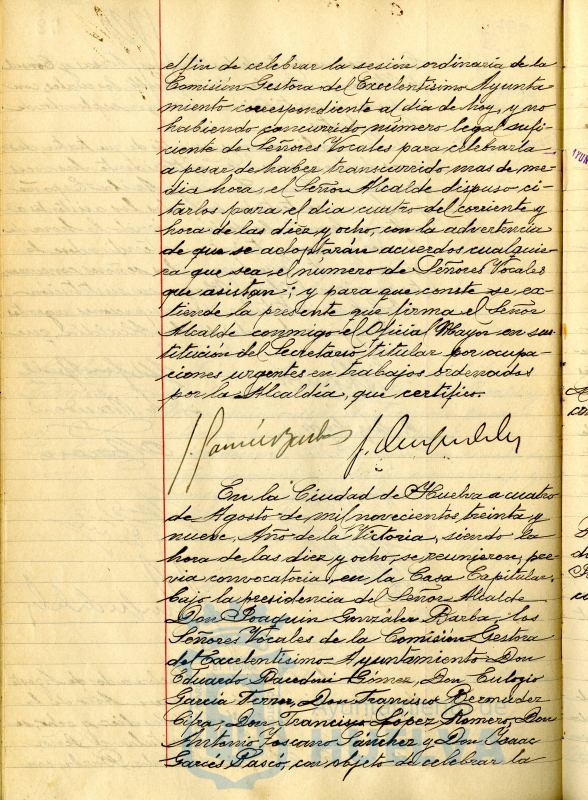 el fin de celebrar la sesión ordinaria de la
Comisión Gestora del Excelentísimo Ayunta
miento correspondiente al día de hoy, y no
habiendo concurrido, número legal sufi-
ciente de Señores Vocales para celebrarla
a pesar de haber transcurrido, mas de me-
dia hora, el Señor Alcalde dispuso, ci-
tarlos para el día cuatro del corriente y
hora de las diez y ocho, con la advertencia
de que se adoptarán acuerdos cualquie-
ra que sea el número de Señores Vocales
que asistan; y para que conste se ex-
tiende la presente que firma el Señor
Alcalde conmigo el Oficial Mayor en sus
titución del Secretario titular por ocupa-
ciones urgentes en trabajos ordenados
por la Alcaldía, que certifico.
En la Ciudad de Huelva a cuatro
de Agosto de mil novecientos treinta y
nueve, Año de la Victoria, siendo la
hora de las diez y ocho, se reunieron, pre-
via convocatoria, en la Casa Capitular,
bajo la presidencia del Señor Alcalde
Don Joaquín González Barba, los
Señores Vocales de la Comisión Gestora
del Excelentísimo Ayuntamiento Don
Eduardo Gómez, Don Eulogio
García Don Francisco Bermudez
Don Francisco López Romero, Don
Antonio Toscano Sánchez y Don Isaac
Garcés Pasco, con objeto de celebrar la
HUELVA